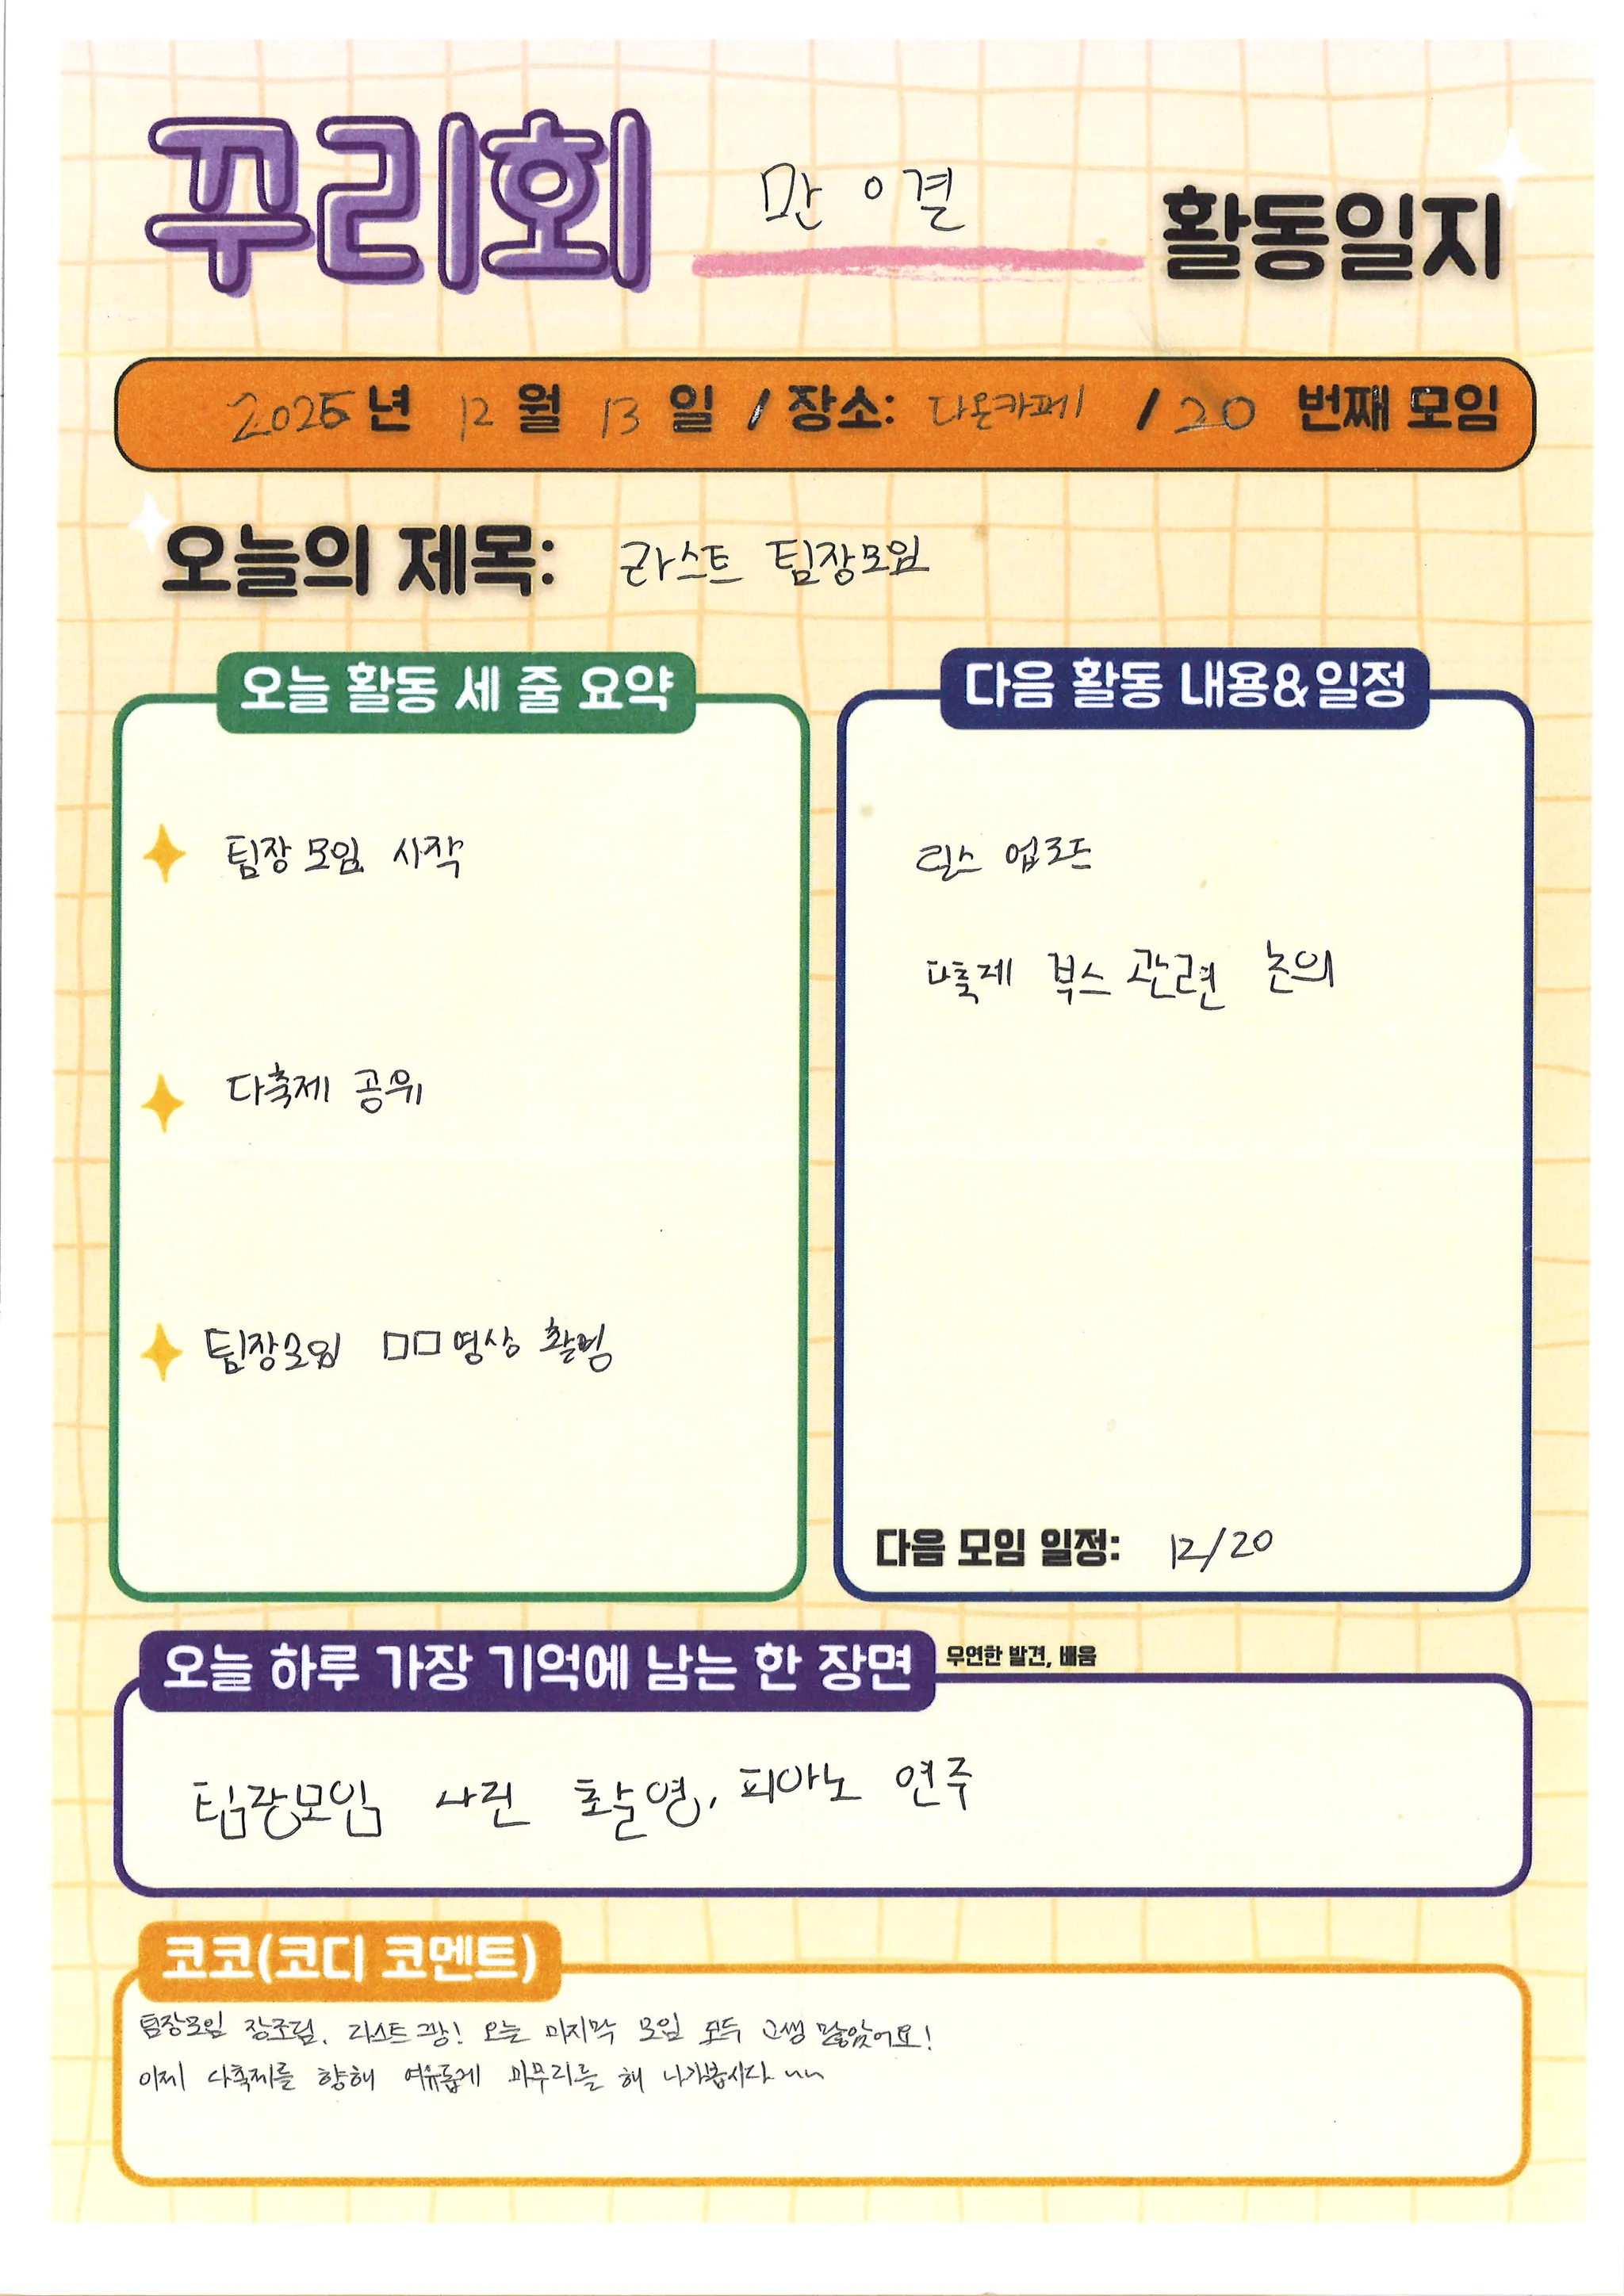 꾸리회 만 이결 활동일지
2025년 12월 13일 / 장소: 다온카페 / 20 번째 모임
오늘의 제목: 라스트 팀장모임
오늘 활동 세 줄 요약
팀장 모임 시작
다축제 공유
팀장모임 ㅁㅁ영상 촬영
다음 활동 내용&일정
릴스 업로드
다축제 부스 관련 논의
다음 모임 일정: 12/20
오늘 하루 가장 기억에 남는 한 장면 우연한 발견, 배움
팀장모임 사진 촬영, 피아노 연주
코코(코디 코멘트)
팀장모임 라스트 오늘 마지막 모임 모두 고생 많았어요!
이제 다축제를 향해 여유롭게 마무리를 해 나가봅시다 ~~